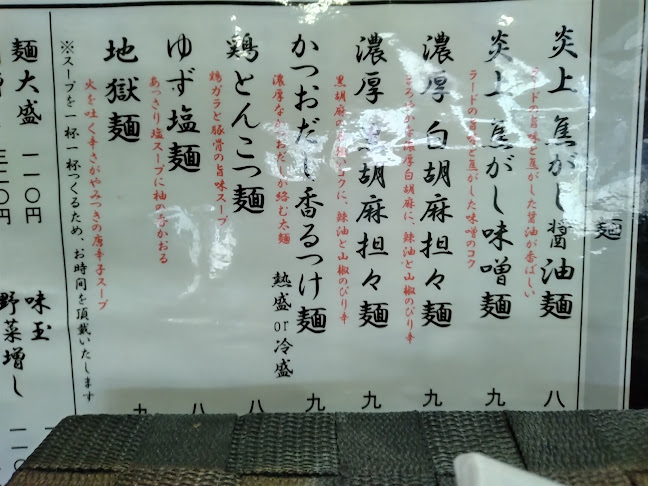 麺
炎上 焦がし醤油麺 八
ラードの旨味と焦がした醤油が香ばしい
炎上 焦がし味噌麺 九
ラードの旨味と焦がした味噌のコク
濃厚 白胡麻担々麺 九
濃厚白胡麻に、辣油と山椒のぴり辛
濃厚 黒胡麻担々麺 九
黒胡麻の コクに、辣油と山椒のぴり辛
かつおだし香るつけ麺 九
熱盛 or 冷盛
濃厚な かつおだしが絡む太麺
鶏とんこつ麺 八
鶏ガラと豚骨の旨味スープ
ゆず塩麺 八
あっさり塩スープに柚の香かおる
地獄麺 九
火を吐く辛さがやみつきの唐辛子スープ
※スープを一杯一杯つくるため、お時間を頂戴いたします
麺大盛 一一〇円
味玉 一
三二〇円
野菜増し 一